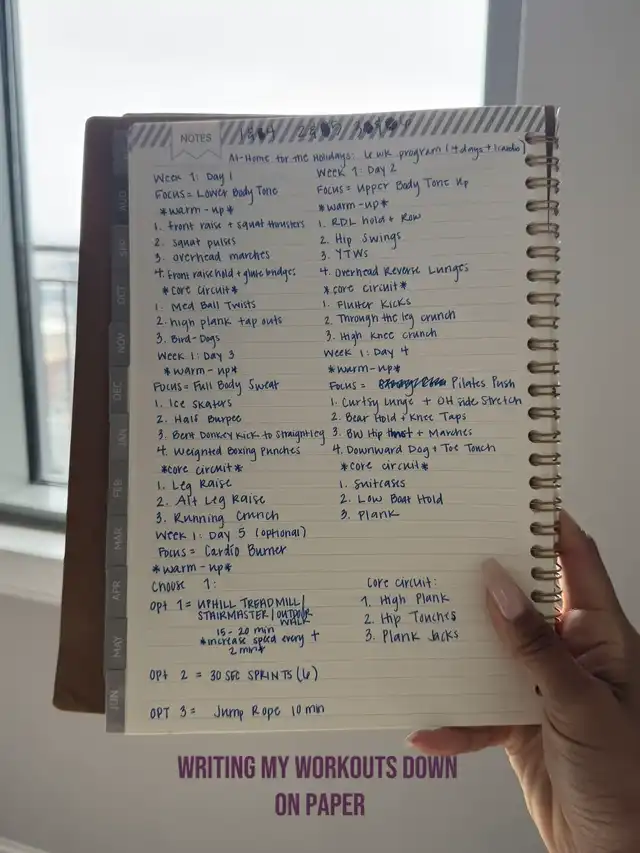 NOTES
At-Home for the Holidays: 6 wk program (4 days + 1 cardio)
Week 1: Day 1
Focus = Lower Body Tone
*warm-up*
1. front raise + squat thrusters
2. squat pulses
3. overhead marches
4. front raise hold + glute bridges
*core circuit*
1. Med Ball Twists
2. high plank tap outs
3. Bird-Dogs
Week 1: Day 2
Focus = Upper Body Tone Up
*warm-up*
1. RDL hold + Row
2. Hip Swings
3. YTWs
4. Overhead Reverse Lunges
*core circuit*
1. Flutter Kicks
2. Through the leg crunch
3. High Knee crunch
Week 1: Day 3
*warm-up*
Focus = Full Body Sweat
1. Ice Skaters
2. Half Burpee
3. Bent Donkey Kick to Straight leg
4. Weighted Boxing Punches
*core circuit*
1. Leg Raise
2. Alt Leg Raise
3. Running Crunch
Week 1: Day 4
*warm-up*
Focus = Pilates Push
1. Curtsy Lunge + OH side Stretch
2. Bear Hold + Knee Taps
3. BW Hip thrust + Marches
4. Downward Dog + Toe Touch
*core circuit*
1. Suitcases
2. Low Boat Hold
3. Plank
Week 1: Day 5 (optional)
Focus = Cardio Burner
*warm-up*
Choose 1:
Opt 1 = UPHILL TREADMILL/
STAIRMASTER/OUTDOOR
WALK
15-20 min
*increase speed every +
2 min*
Opt 2 = 30 SEC SPRINTS (6)
OPT 3 = Jump Rope 10 min
Core circuit:
1. High Plank
2. Hip Touches
3. Plank Jacks
AUG
SEP
OCT
NOV
DEC
JAN
FEB
MAR
APR
MAY
JUN
WRITING MY WORKOUTS DOWN
ON PAPER